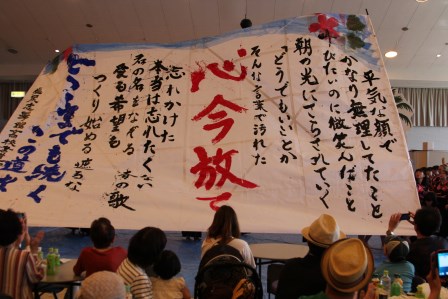 平気な顔で
かなり無理してたこと
叫びたいのに微笑んだこと
朝の光にてらされていく
「どうでもいいとか
そんな言葉で汚れた
心今放て
忘れかけた
本当は忘れたくない
君の名をなぞる
愛も希望も
つくり始める 遮るな
どこまでも続く
この道を